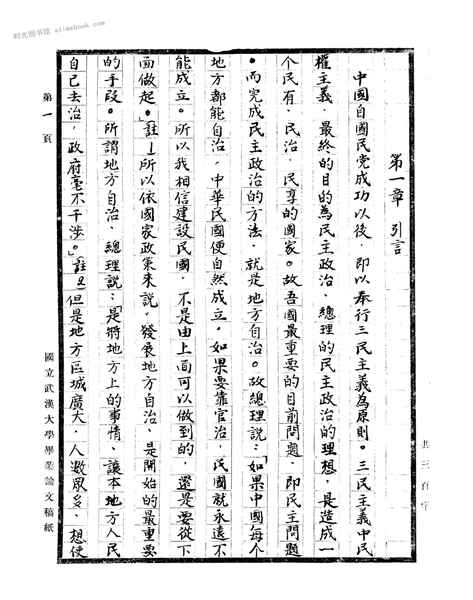 時光圖書館 alinebook.com
第一章 引言
中國自國民党成功以後，即以奉行三民主義為原則。三民主義中民
權主義，最終的目的為民主政治，總理的民主政治的理想，是造成一
个民有、民治、民享的國家。故吾國最重要的目前問題，即民主問題
。而完成民主政治的方法，就是地方自治。故總理說：「如果中國每个
地方都能自治，中華民國便自然成立。如果要靠官治，民國就永遠不
能成立。所以我相信建設民國，不是由上面可以做到的，還是要從下
面做起。」[註1]所以依國家政策來說，發展地方自治，是開始的最重要
的手段。所謂地方自治，總理說：是將地方上的事情，讓本地方人民
自己去治，政府毫不干涉。」[註2]但是地方區域廣大，人数眾多，想使
第 1 頁
國立武漢大學畢業論文稿紙